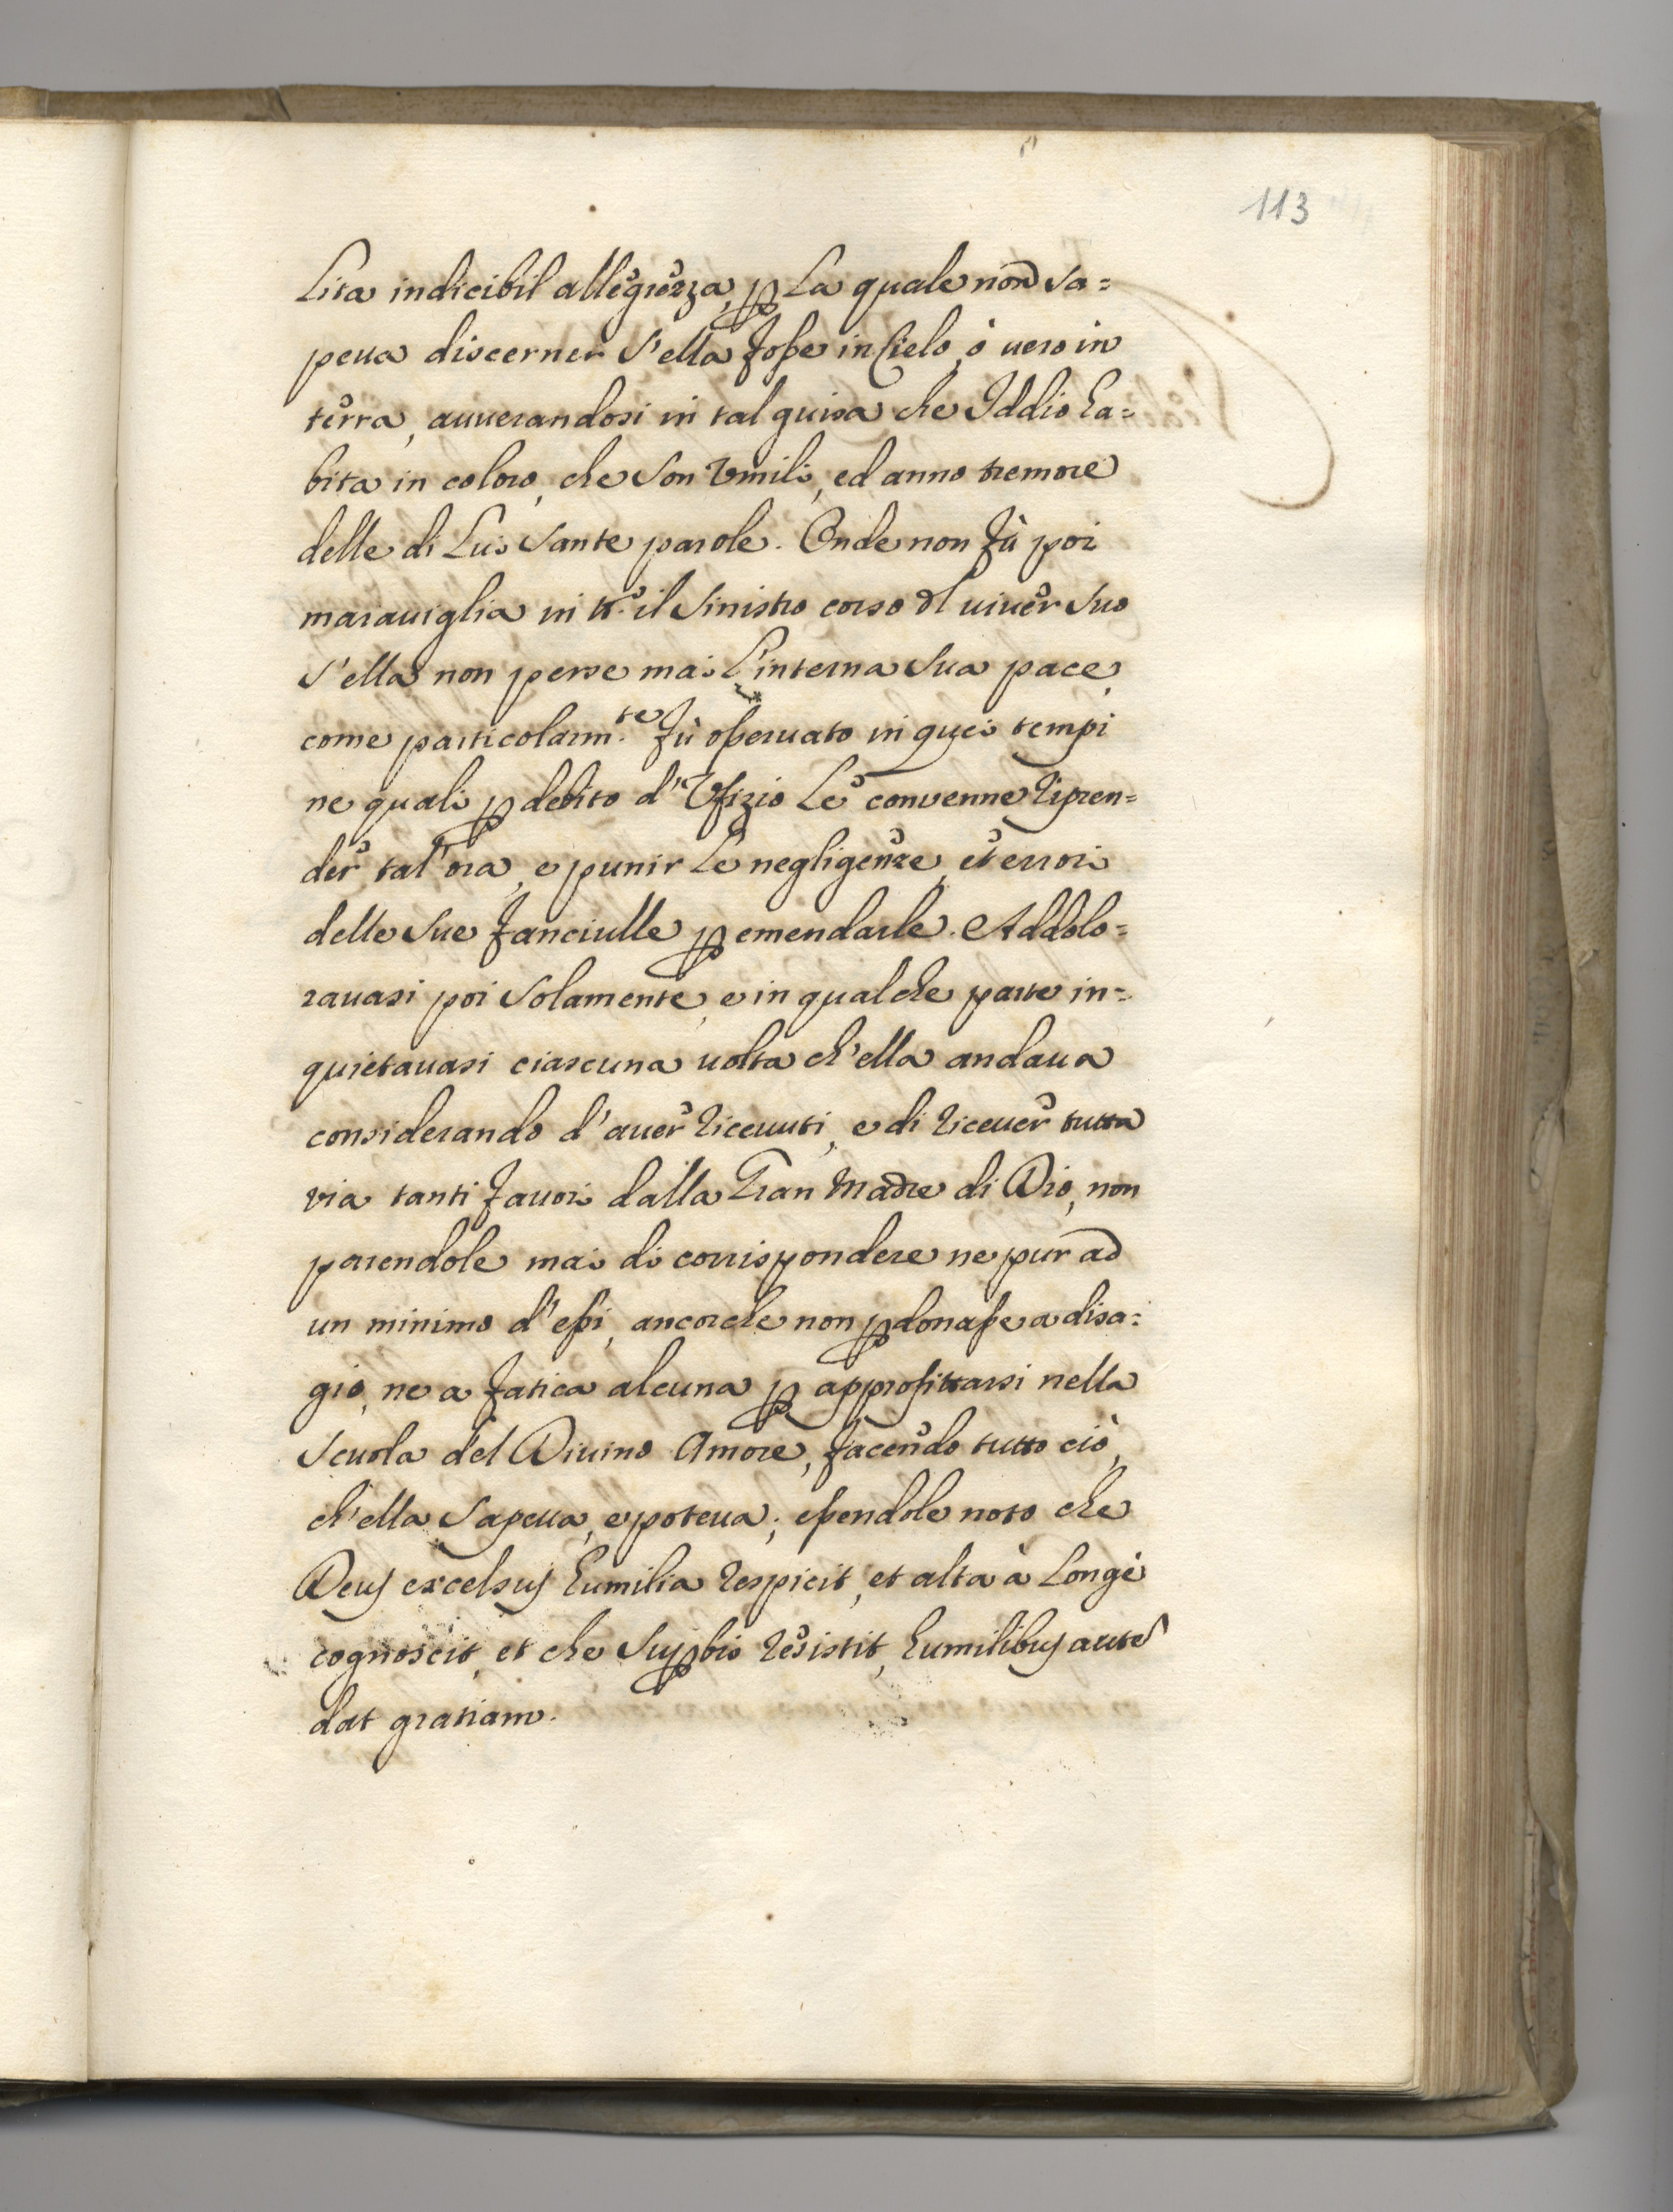 113
lita indicibil allegrezza, ꝑ la quale non sa=
peua discerner s'ella fosse in Cielo, ò uero in
terra, auuerandosi in tal guisa che Iddio ha=
bita in coloro, che son Vmili, ed anno tremore
delle di Lui sante parole. Onde non fù poi
marauiglia in tt.º il sinistro corso dl uiuer suo
s'ella non perse mai l'interna sua pace,
come particolarm.te fù osseruato in quei tempi
ne quali ꝑ debito d'Vfizio le conuenne ripren=
der tal'ora, e punir le negligenze, et errori
delle sue fanciulle ꝑ emendarle. Addolo=
rauasi poi solamente, e in qualche parte in=
quietauasi ciascuna uolta ch'ella andaua
considerando d'auer riceuuti, e di riceuer tutta
via tanti fauori dalla Gran Madre di Dio, non
parendole mai di corrispondere ne pur ad
un minimo d'essi, ancorche non ꝑdonasse a disa=
gio, ne a fatica alcuna ꝑ approfittarsi nella
scuola del Diuino Amore, facendo tutto ciò,
ch'ella sapeua, e poteua; essendole noto che
Deus excelsus humilia respicit, et alta à longè
cognoscit, et che suꝑbis resistit, humilibus aute
dat gratiam.